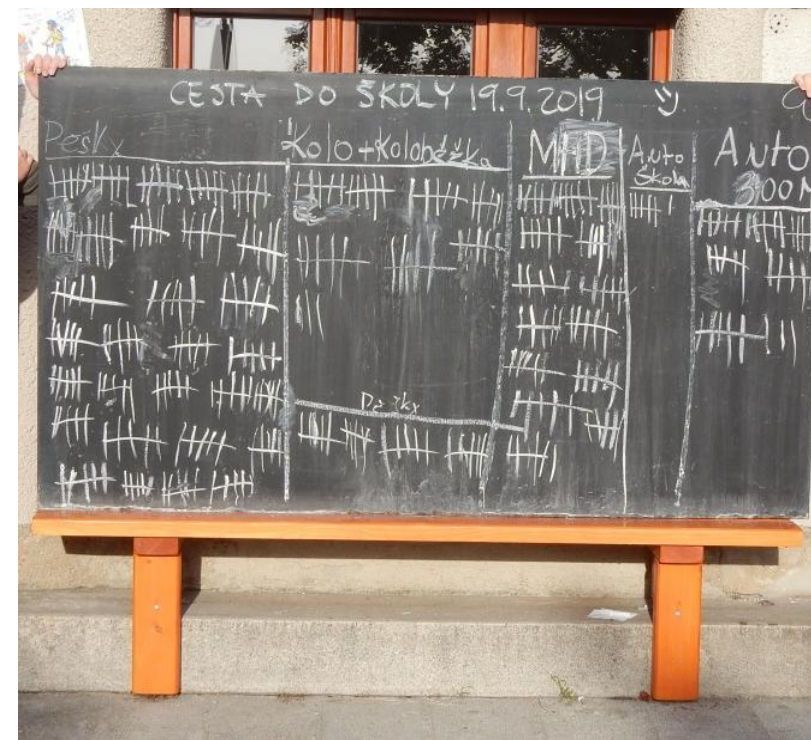 CESTA DO ŠKOLY 19.9.2019
Pěšky
Kolo + Koloběžka
MHD
Auto
Škola
Auto
300 M
Pěšky